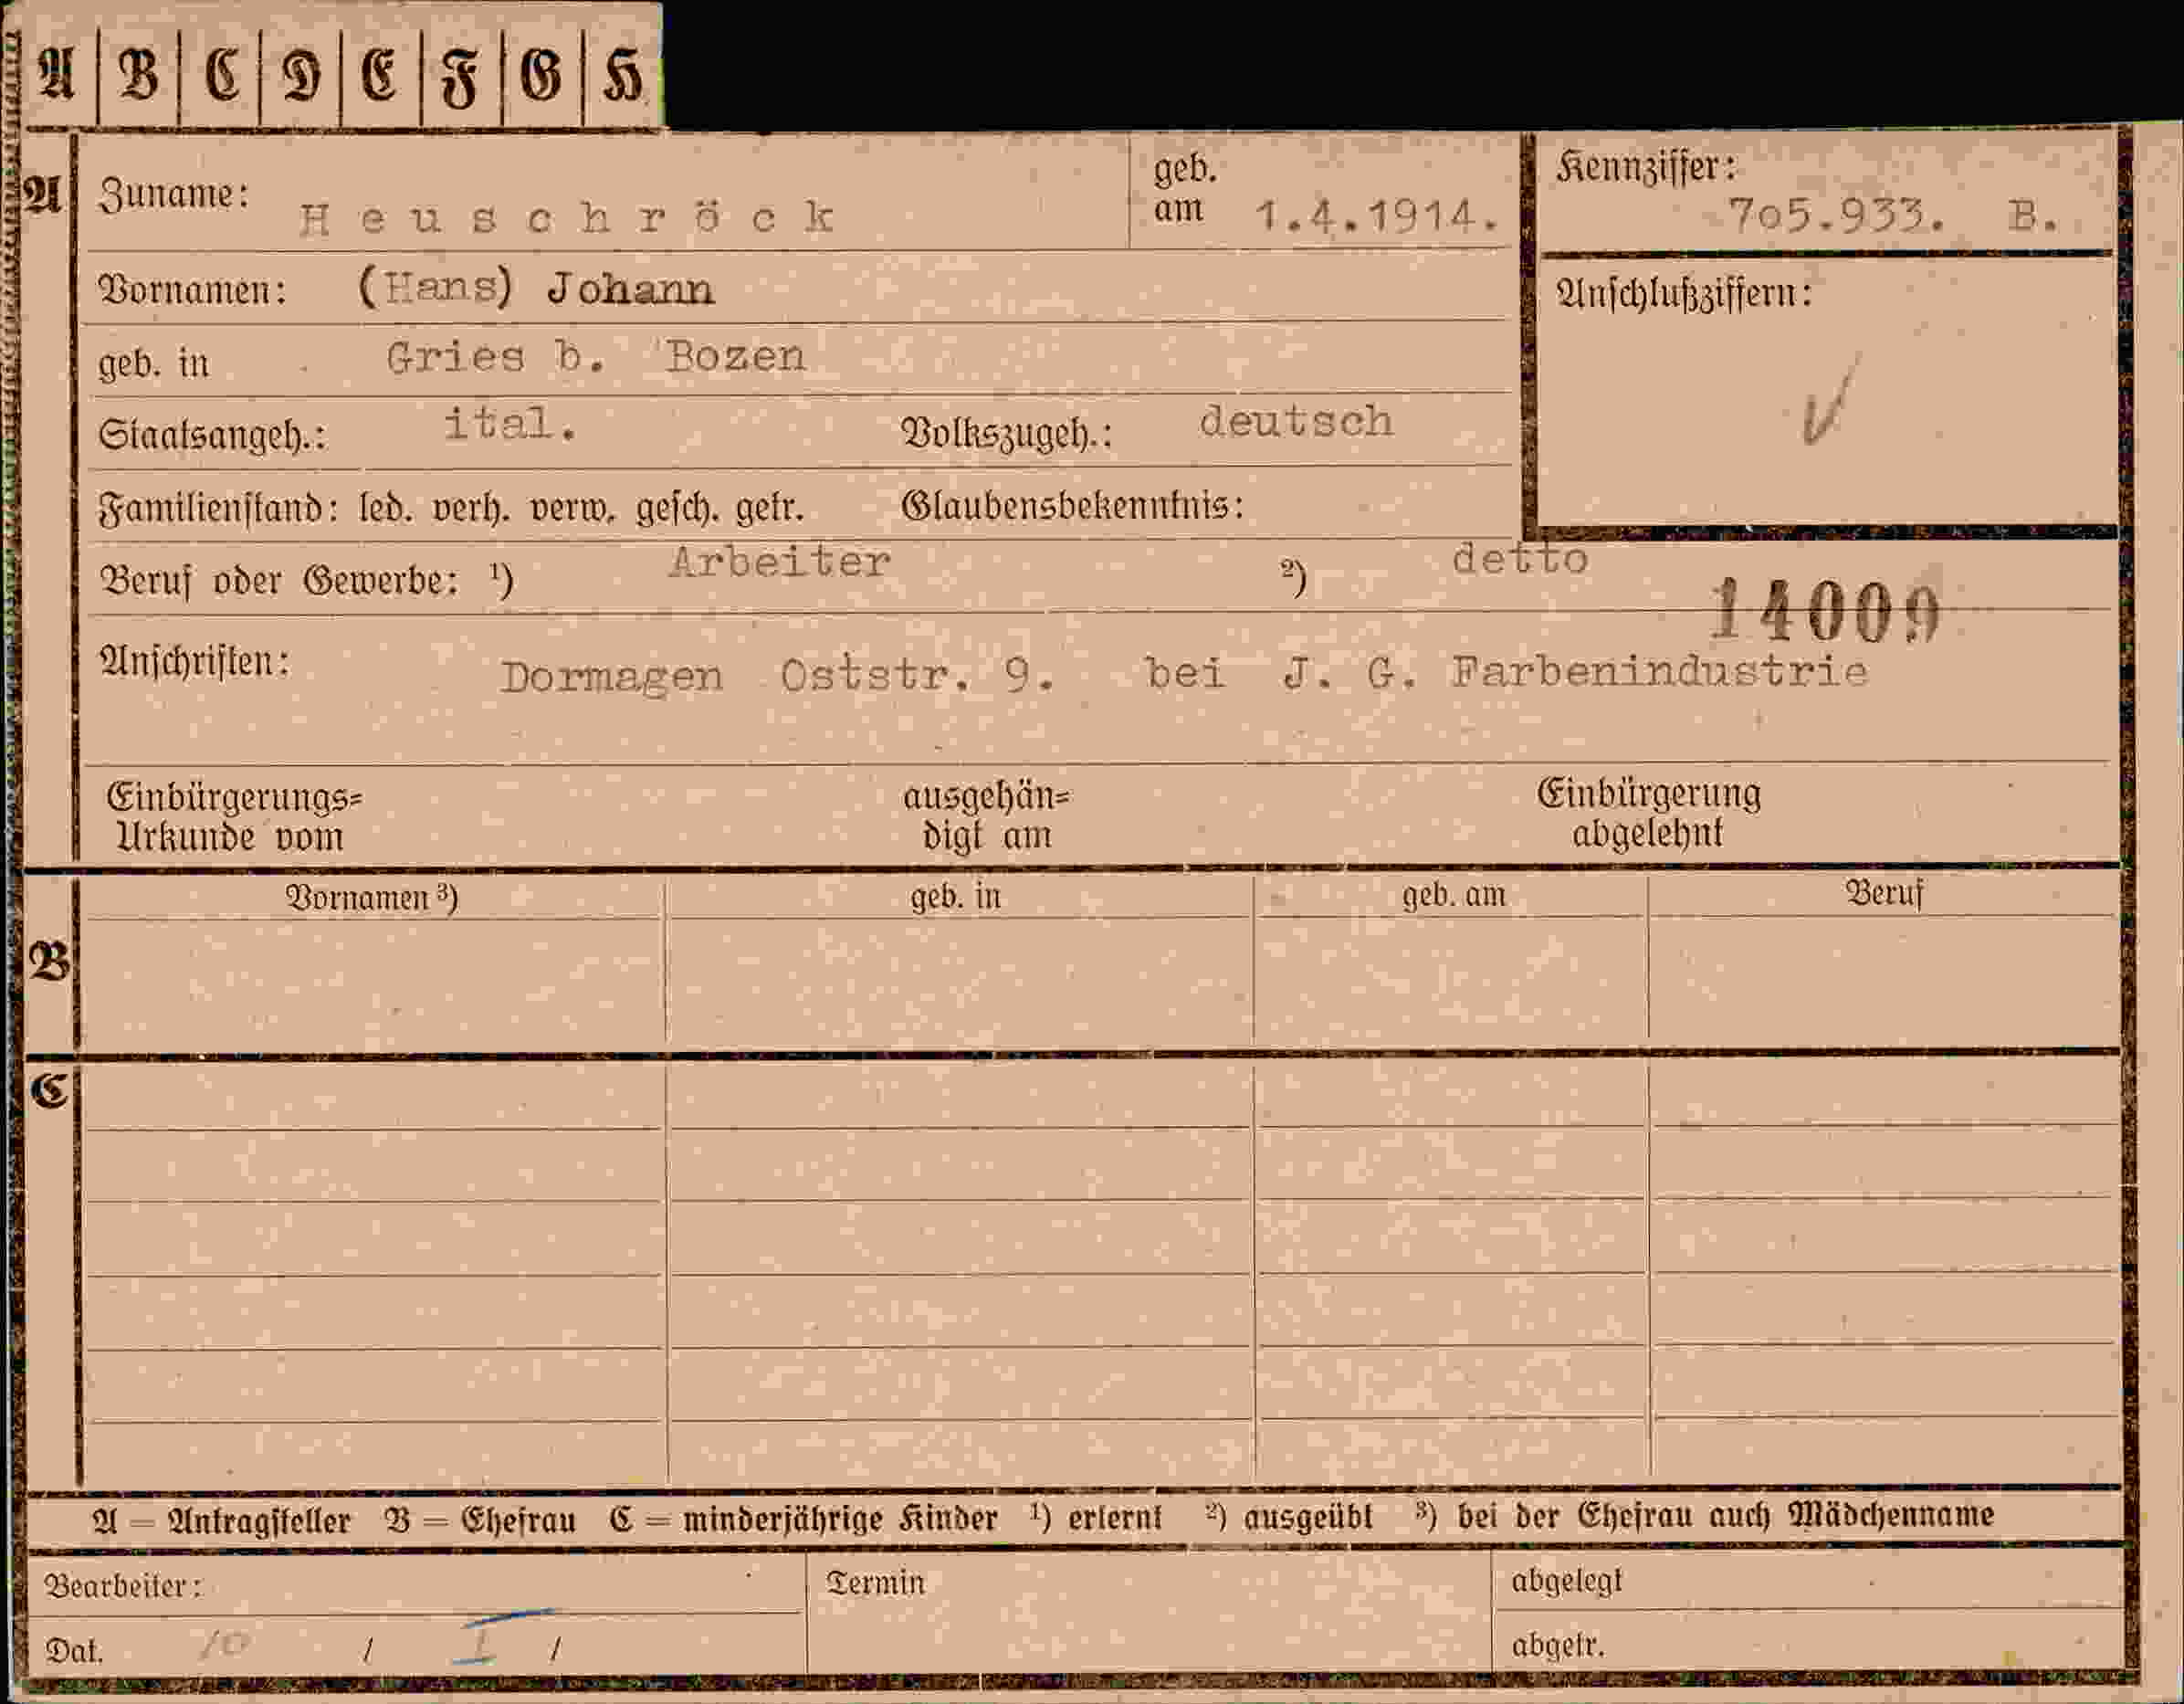 A B C D E F G H
A Zuname: Heuschröck geb. am 1.4.1914. Kennziffer: 705.933. B.
Vornamen: (Hans) Johann Anschlußziffern:
geb. in Gries b. Bozen
Staatsangeh.: ital. Volkszugeh.: deutsch
Familienstand: led. verh. verw. gesch. getr. Glaubensbekenntnis:
Beruf oder Gewerbe: ¹) Arbeiter ²) detto
14009
Anschriften: Dormagen Oststr. 9. bei J. G. Farbenindustrie
Einbürgerungs= ausgehän= Einbürgerung
Urkunde vom digt am abgelehnt
Vornamen ³) geb. in geb. am Beruf
B
C
A = Antragsteller B = Ehefrau C = minderjährige Kinder ¹) erlernt ²) ausgeübt ³) bei der Ehefrau auch Mädchenname
Bearbeiter: Termin abgelegt
Dat. 10 / I / abgetr.